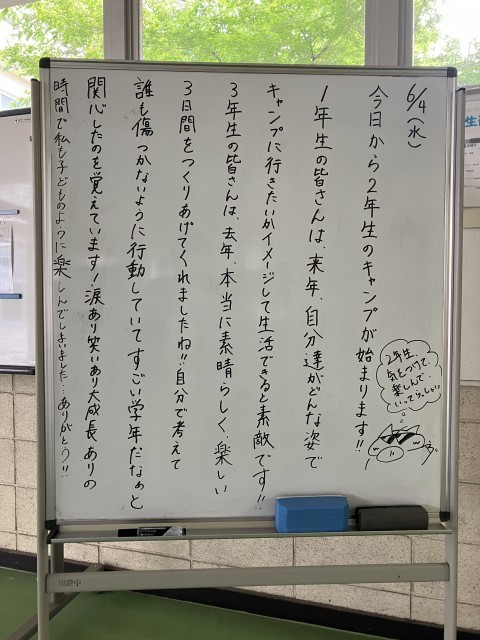 6/4(水)
今日から2年生のキャンプが始まります!!
1年生の皆さんは、来年、自分達がどんな姿で
キャンプに行きたいかイメージして生活できると素敵です!!
3年生の皆さんは、去年、本当に素晴らしく、楽しい
3日間をつくりあげてくれましたね!!自分で考えて
誰も傷つかないように行動していてすごい学年だなぁと
関心したのを覚えています!涙あり笑いあり大成長ありの
時間で私も子どものように楽しんでしまいました…ありがとう!!
2年生、
気をつけて、
楽しんで、
いってらっしゃい